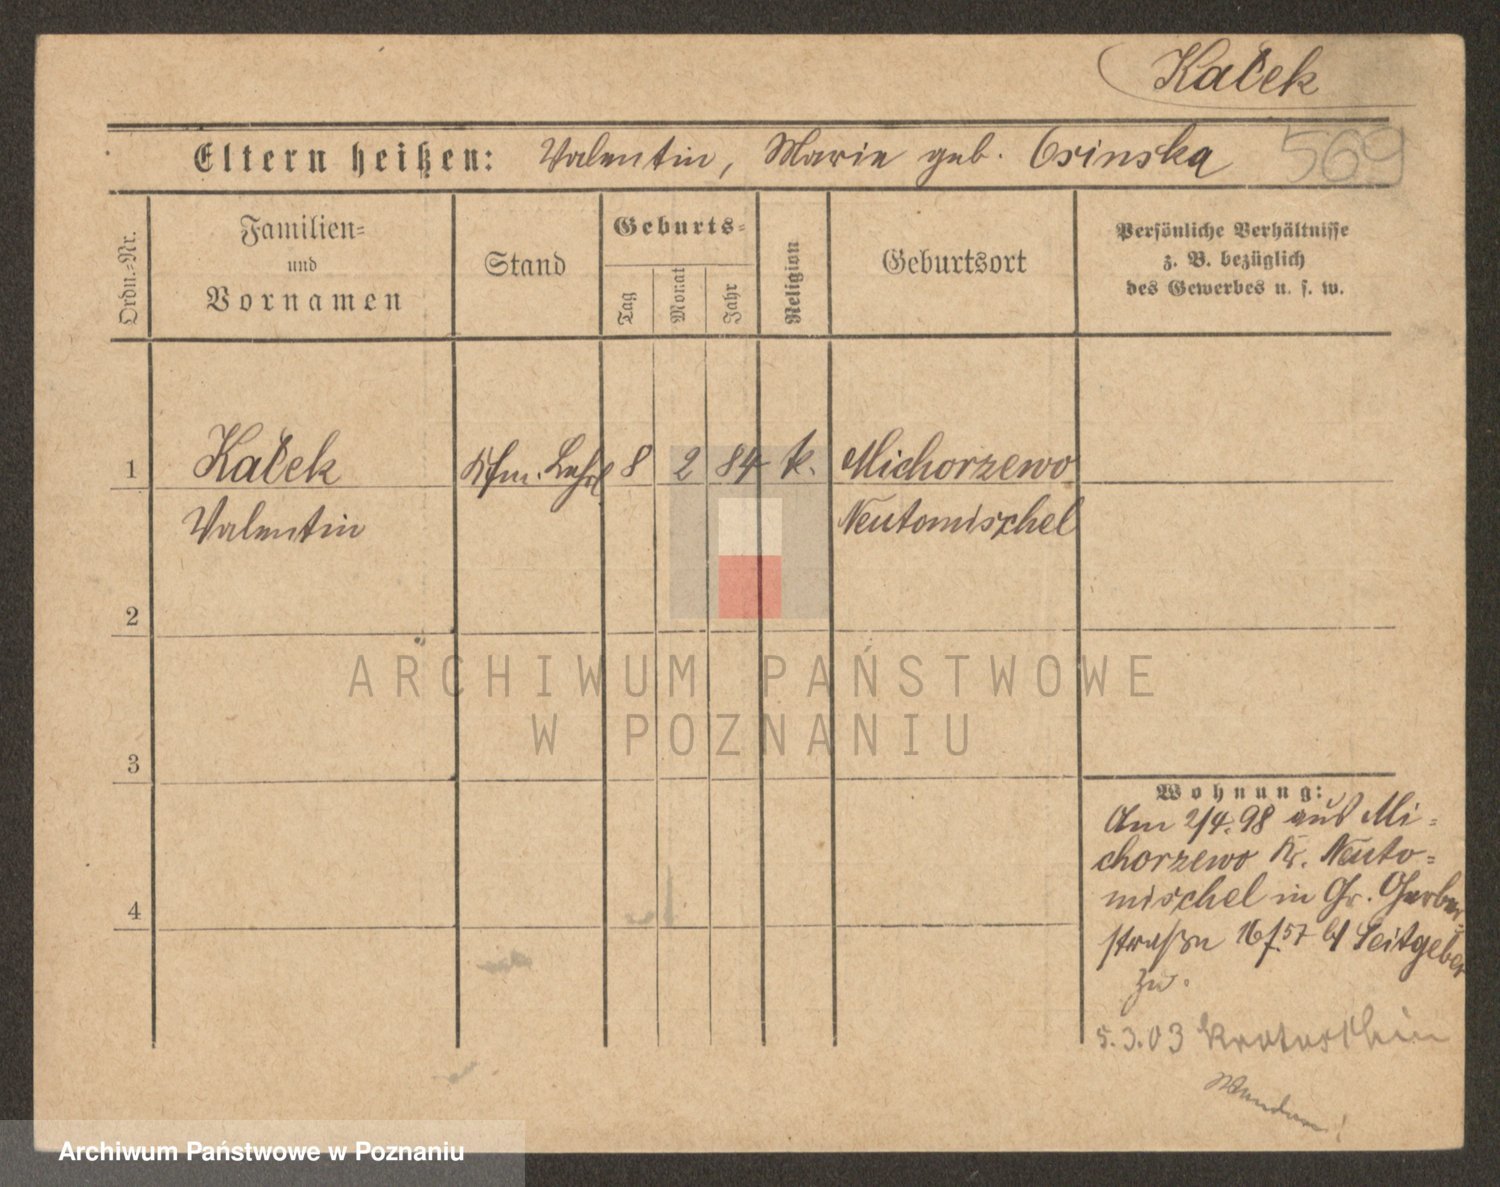 Kaček
Eltern heißen: Valentin, Marie geb. Osinska
569
Ordn.-Nr.
Familien-
und
Vornamen
Stand
Geburts-
Tag
Monat
Jahr
Religion
Geburtsort
Persönliche Verhältnisse
z. B. bezüglich
des Gewerbes u. s. w.
1 Kaček Kfm. Lehrl 8 2 84 k. Michorzewo
Valentin Neutomischel
2
ARCHIWUM PAŃSTWOWE
W POZNANIU
3
Wohnung:
Am 2/4. 98 aus Mi-
chorzewo Kr. Neuto-
mischel in Gr. Gerber-
straße 16 b/ Leitgeber
zu.
4
5.3.03 Krotoschin
Archiwum Państwowe w Poznaniu